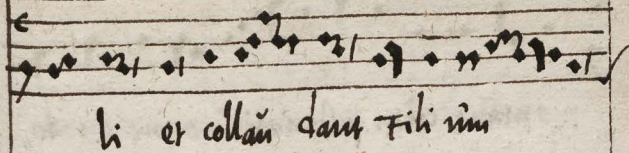 li et collaū dant Fili um